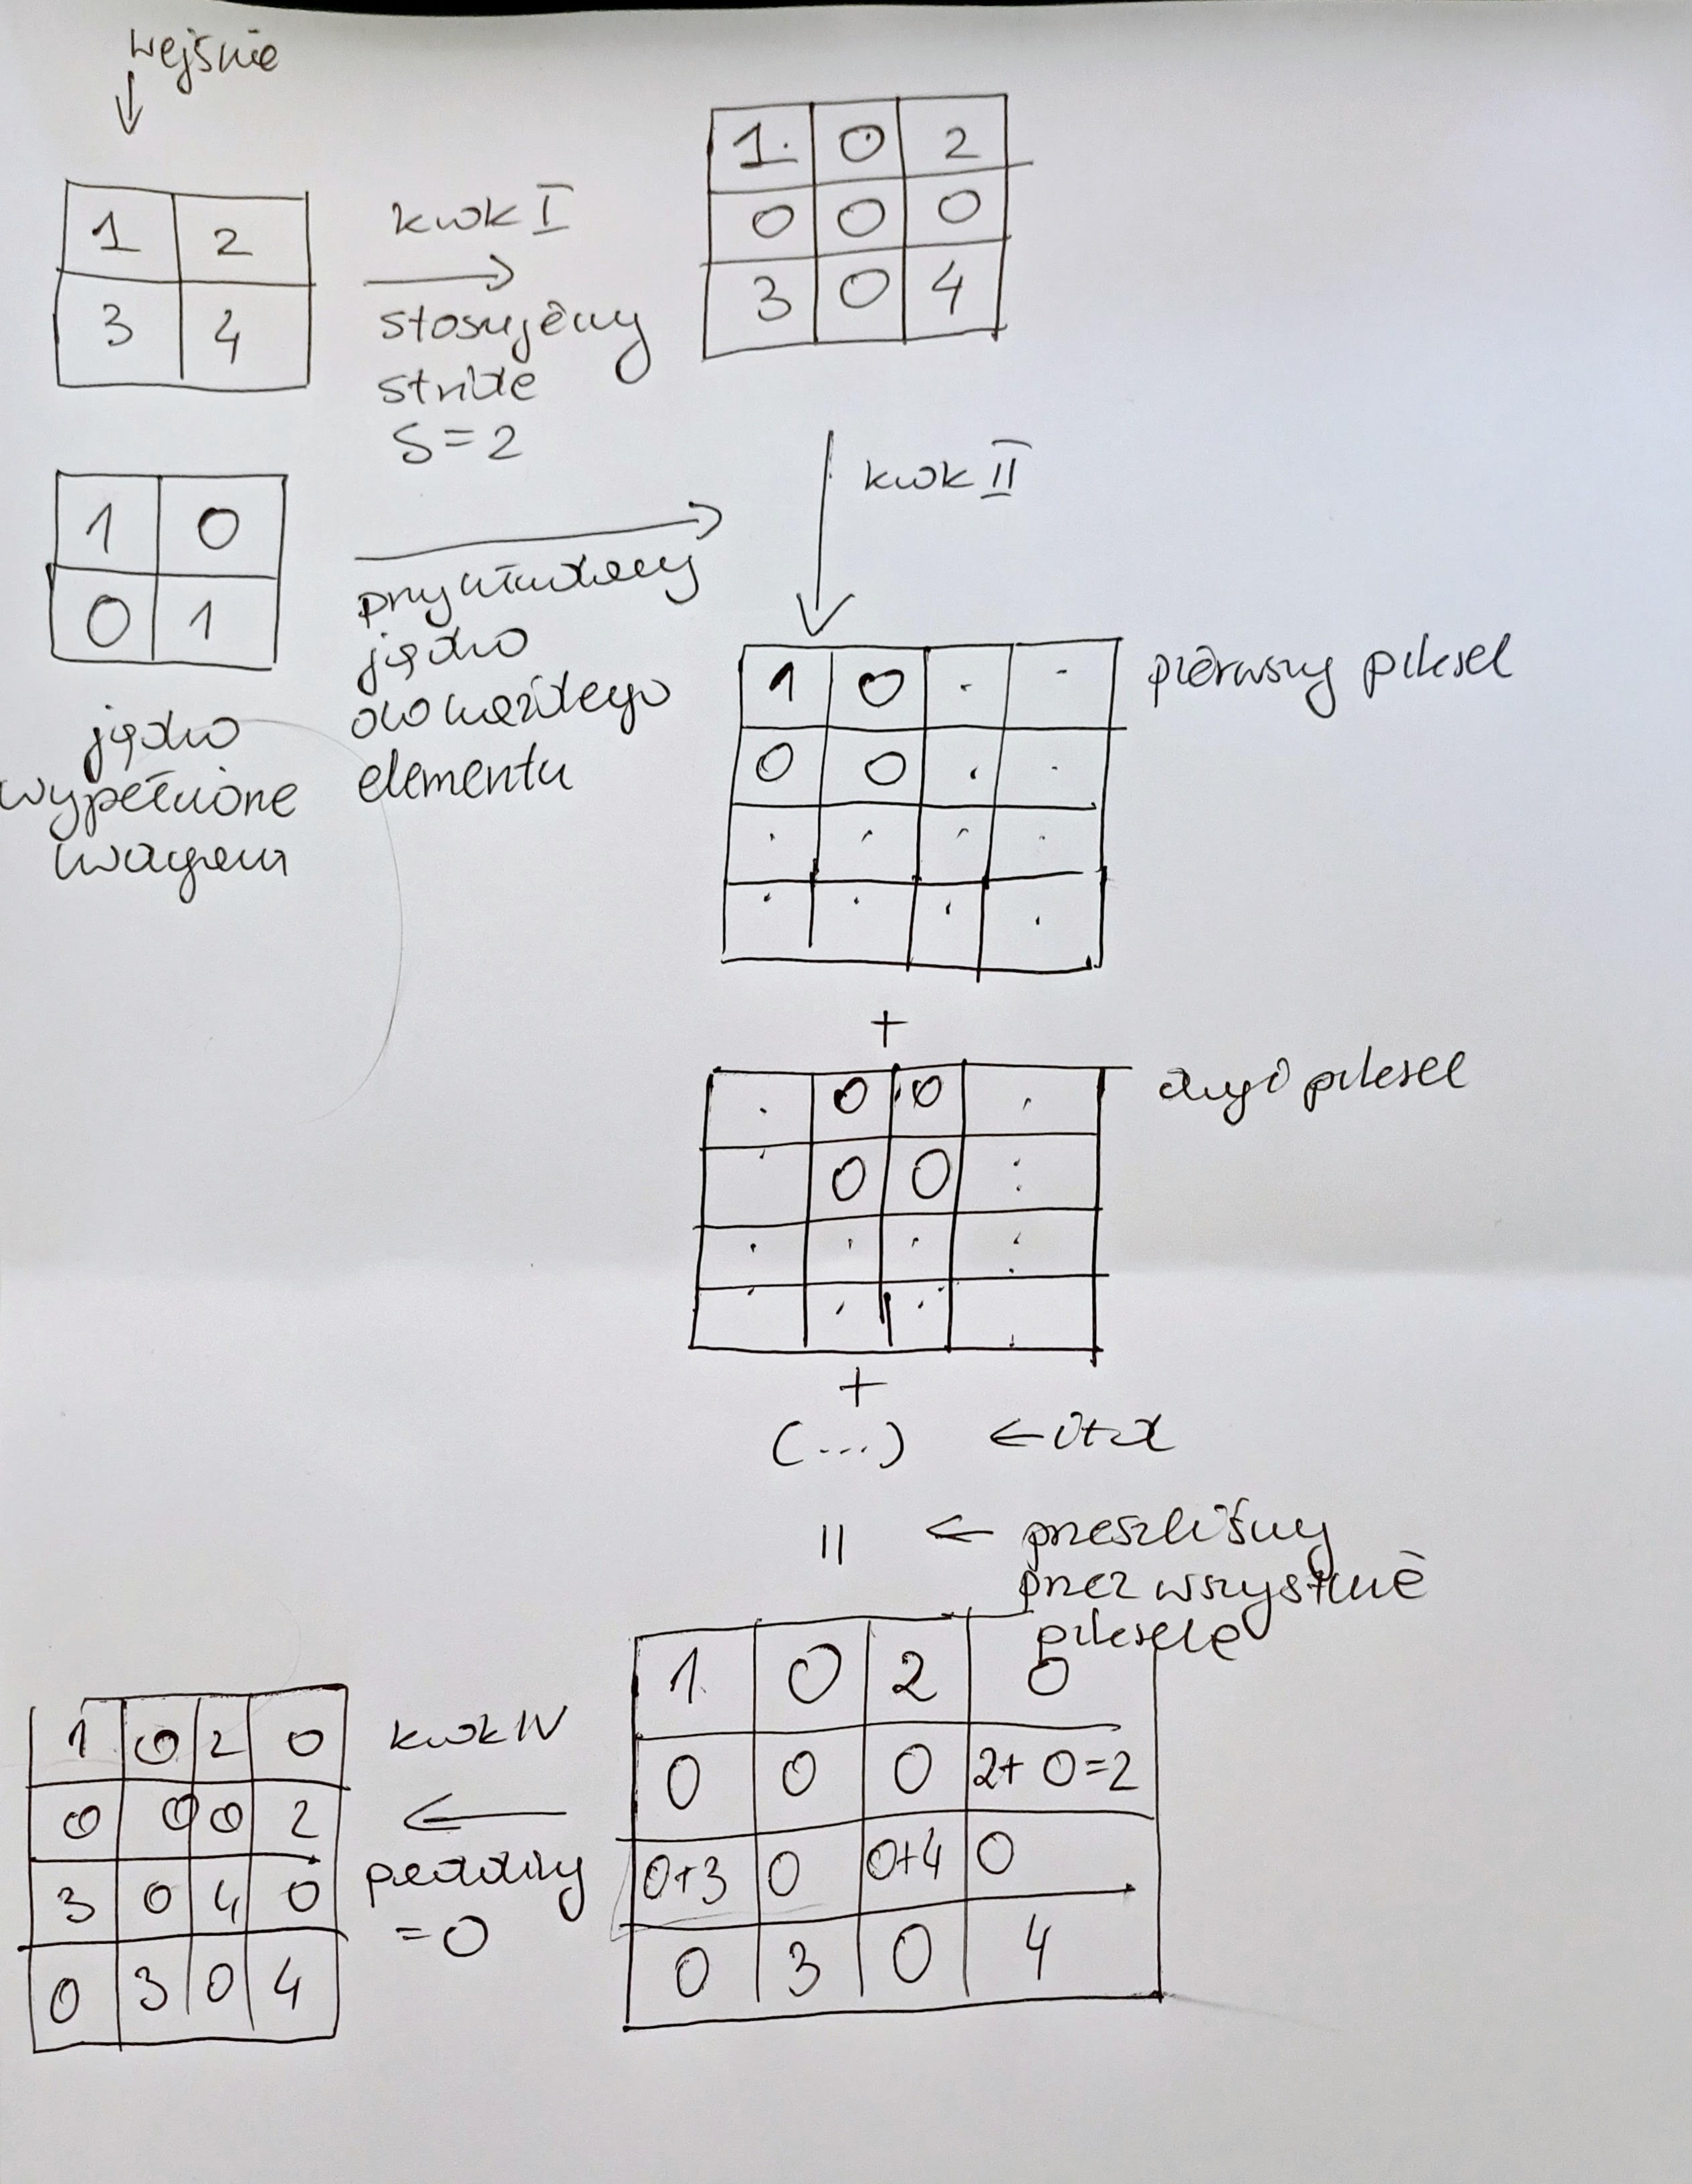 wejście
1 2
3 4
krok I
stosujemy
stride
S=2
1 0 2
0 0 0
3 0 4
1 0
0 1
jądro
wypełnione
wagami
przykładamy
jądro
do każdego
elementu
krok II
1 0 . .
0 0 . .
. . . .
. . . .
pierwszy piksel
+
. 0 0 .
. 0 0 :
. . . :
. . . .
drugi piksel
+
(...) ← itd
= ← przeszliśmy
przez wszystkie
piksele
1 0 2 0
0 0 0 2+0=2
0+3 0 0+4 0
0 3 0 4
krok IV
←
padding
=0
1 0 2 0
0 0 0 2
3 0 4 0
0 3 0 4